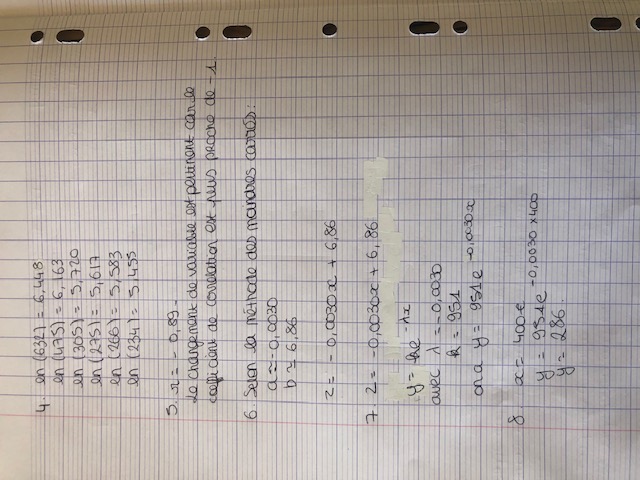 4. ln(632) = 6,448
ln(475) = 6,163
ln(305) = 5,720
ln(275) = 5,617
ln(266) = 5,583
ln(234) = 5,455
5. r = - 0,89
Le changement de variable est pertinent car le
coefficient de corrélation est plus proche de -1
6. Selon la méthode des moindres carrés :
a ≈ -0,0030
b ≈ 6,86
z = - 0,0030x + 6,86
7. z = -0,0030x + 6,86
y = ke^-λx
avec λ = -0,0030
k = 951
on a y = 951e^-0,0030x
8. x = 400€
y = 951e^-0,0030 × 400
y = 286.